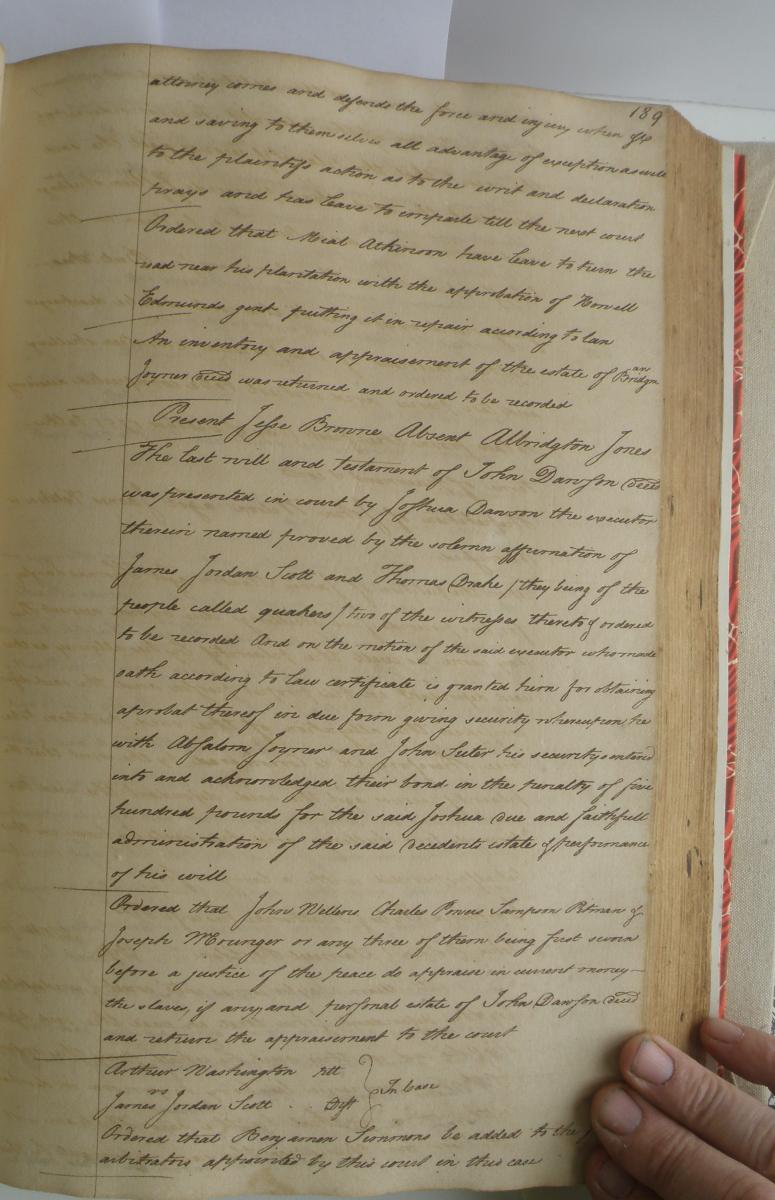 189
attorney comes and defends the force and injury when &c
and saving to themselves all advantage of exception as well
to the plaintiffs action as to the writ and declaration
prays and has leave to imparle till the next court
Ordered that Mial Atkinson have leave to turn the
road near his plantation with the approbation of Howell
Edmunds gent putting it in repair according to law
An inventory and appraisement of the estate of Bridgman
Joyner decd was returned and ordered to be recorded
Present Jesse Browne Absent Albridgton Jones
The last will and testament of John Dawson decd
was presented in court by Joshua Dawson the executor
therein named proved by the solemn affirmation of
James Jordan Scott and Thomas Drake / they being of the
people called quakers / two of the witnesses thereto & ordered
to be recorded And on the motion of the said executor who made
oath according to law certificate is granted him for obtaining
a probat thereof in due form giving security whereupon he
with Absalom Joyner and John Suter his securitys entered
into and acknowledged their bond in the penalty of five
hundred pounds for the said Joshua due and faithfull
administration of the said decedents estate & performance
of his will
Ordered that John Charles Powers Sampson Pitman &
Joseph Mounger or any three of them being first sworn
before a justice of the peace do appraise in current money
the slaves, if any, and personal estate of John Dawson decd
and return the appraisement to the court
Arthur Washington Plt
vs
In Case
James Jordan Scott Dft
Ordered that Benjamen Simmons be added to the
arbitrators appointed by this court in this case